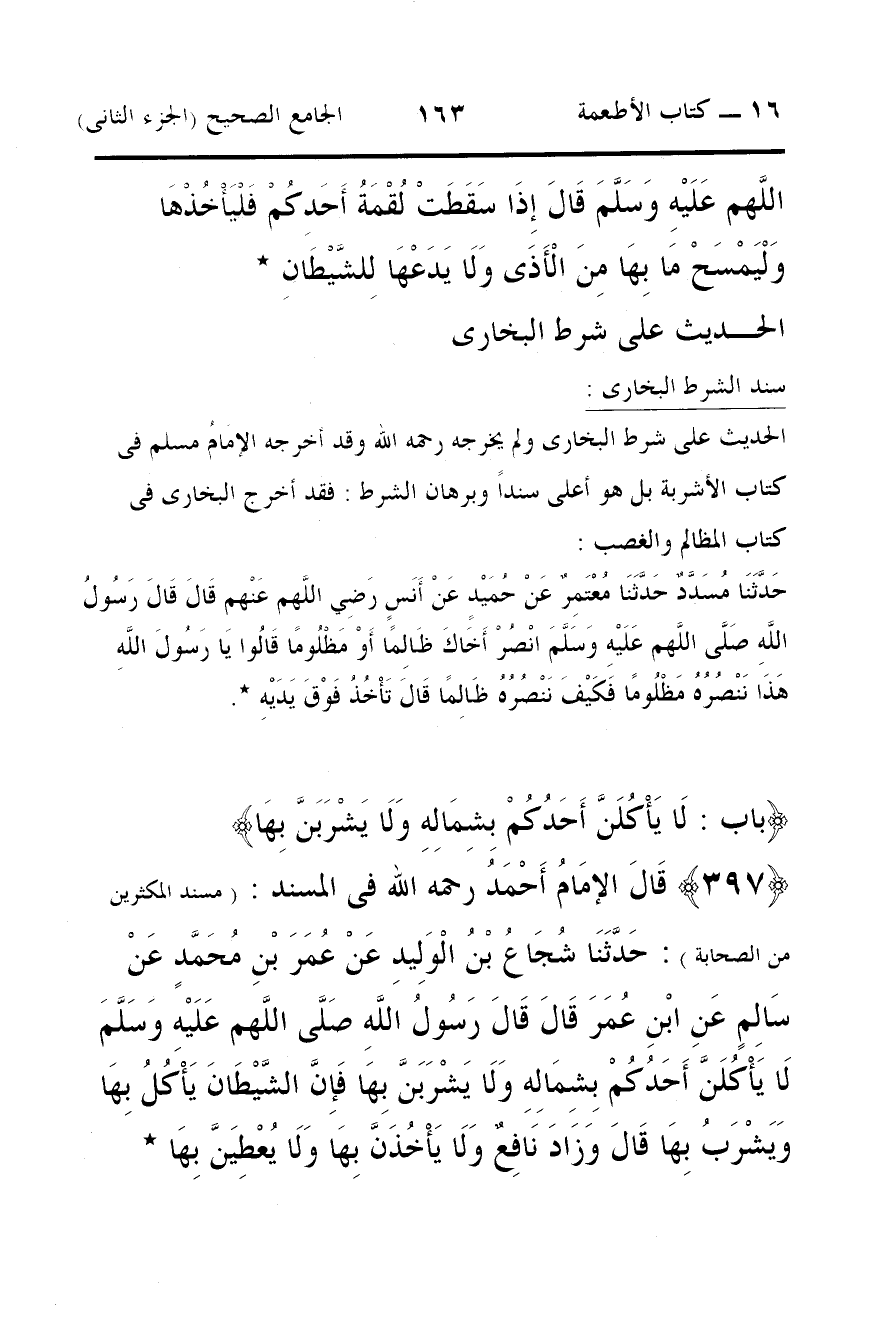 ١٦ – كتاب الأطعمة ١٦٣ الجامع الصحيح (الجزء الثانى)
اللَّهم عَلَيْهِ وَسَلَّمَ قَالَ إِذَا سَقَطَتْ لُقْمَةُ أَحَدِكُمْ فَلْيَأْخُذْهَا
وَلْيَمْسَحْ مَا بِهَا مِنَ الْأَذَى وَلَا يَدَعْهَا لِلشَّيْطَانِ *
الحـديث على شرط البخارى
سند الشرط البخارى :
الحديث على شرط البخارى ولم يخرجه رحمه الله وقد أخرجه الإمامُ مسلم فى
كتاب الأشربة بل هو أعلى سنداً وبرهان الشرط : فقد أخرج البخارى فى
كتاب المظالم والغصب :
حَدَّثَنَا مُسَدَّدٌ حَدَّثَنَا مُعْتَمِرٌ عَنْ حُمَيْدٍ عَنْ أَنَسٍ رَضِي اللَّهم عَنْهم قَالَ قَالَ رَسُولُ
اللَّهِ صَلَّى اللَّهم عَلَيْهِ وَسَلَّمَ انْصُرْ أَخَاكَ ظَالِمًا أَوْ مَظْلُومًا قَالُوا يَا رَسُولَ اللَّهِ
هَذَا نَنْصُرُهُ مَظْلُومًا فَكَيْفَ نَنْصُرُهُ ظَالِمًا قَالَ تَأْخُذُ فَوْقَ يَدَيْهِ *.
﴿باب : لَا يَأْكُلَنَّ أَحَدُكُمْ بِشِمَالِهِ وَلَا يَشْرَبَنَّ بِهَا﴾
﴿٣٩٧﴾ قَالَ الإمَامُ أَحْمَدُ رحمه الله فى المسند : ( مسند المكثرين
من الصحابة ) : حَدَّثَنَا شُجَاعُ بْنُ الْوَلِيدِ عَنْ عُمَرَ بْنِ مُحَمَّدٍ عَنْ
سَالِمٍ عَنِ ابْنِ عُمَرَ قَالَ قَالَ رَسُولُ اللَّهِ صَلَّى اللَّهم عَلَيْهِ وَسَلَّمَ
لَا يَأْكُلَنَّ أَحَدُكُمْ بِشِمَالِهِ وَلَا يَشْرَبَنَّ بِهَا فَإِنَّ الشَّيْطَانَ يَأْكُلُ بِهَا
وَيَشْرَبُ بِهَا قَالَ وَزَادَ نَافِعٌ وَلَا يَأْخُذَنَّ بِهَا وَلَا يُعْطِيَنَّ بِهَا *